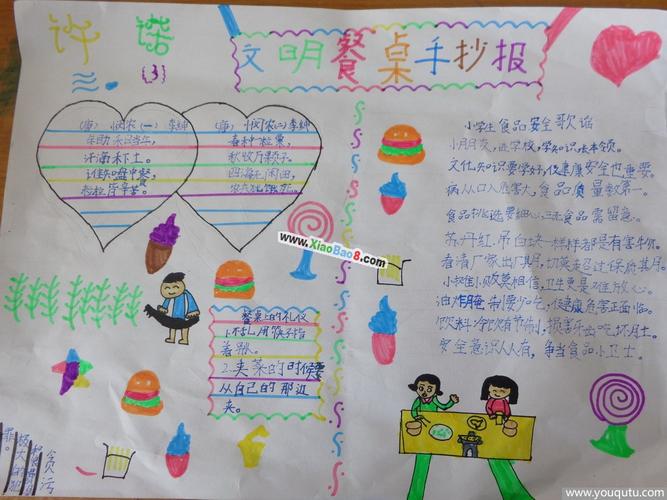 许诺
(3)
文明餐桌手抄报
(唐) 悯农(一) 李绅
汗滴禾土。
谁知盘中餐，
粒粒皆辛苦。
(唐) 悯农(二) 李绅
春种一粒粟，
秋收万颗子。
四海无闲田，
www.XiaoBao8.com
小学生食品安全歌谣
小朋友，进学校，学知识，长本领。
文化知识要学好，健康安全也重要。
病从口入危害大，食品质量数第一。
食品挑选要细心，三无食品需留意。
苏丹红，吊白块一样样都是有害
看清厂家出厂其月，切莫超过保质其月。
小摊小贩莫相信，卫生更是难放心。
油炸腌制要少吃，健康危害正面临。
饮料冷饮有节制，损害牙齿吃坏月土。
安全意识人人有，争当食品小卫士。
餐桌上的礼仪
1.不扎用筷子指
着别人。
2.夹菜的时候要
从自己的那边
夹。
贪污
极大的犯
罪。
www.youqutu.com